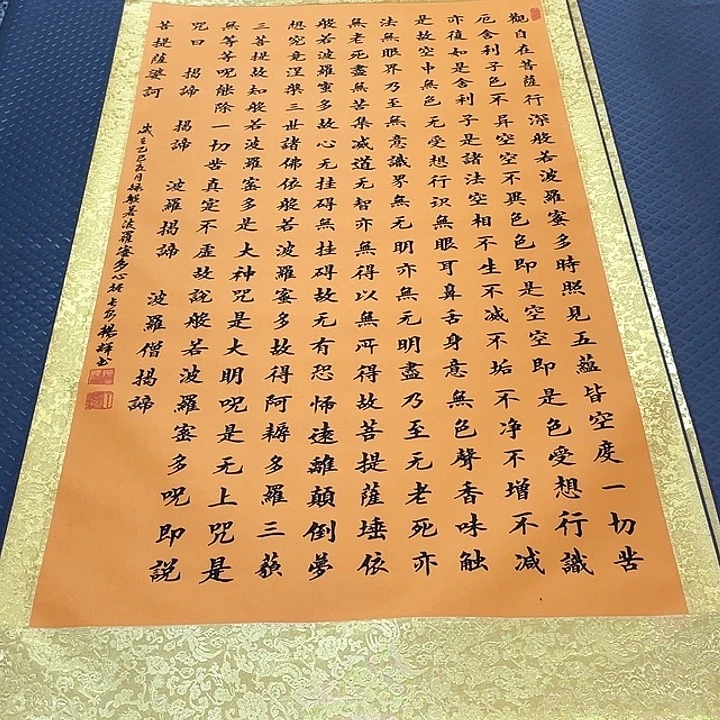 觀自在菩薩行深般若波羅蜜多時照見五蘊皆空度一切苦
厄舍利子色不异空空不異色色即是空空即是色受想行識
亦復如是舍利子是諸法空相不生不滅不垢不净不增不减
是故空中無色无受想行识無眼耳鼻舌身意無色聲香味触
法無眼界乃至無意識界無无明亦無无明盡乃至无老死亦
無老死盡無苦集滅道无智亦無得以無所得故菩提薩埵依
般若波羅蜜多故心无挂碍無挂碍故无有恐怖遠離顛倒夢
想究竟涅槃三世諸佛依般若波羅蜜多故得阿耨多羅三藐
三菩提故知般若波羅蜜多是大神咒是大明呪是无上咒是
無等等呪能除一切苦真定不虛故説般若波羅蜜多呪即説
咒曰 揭諦 揭諦 波羅揭諦 波羅僧揭諦
菩提薩婆訶
歲在乙巳夏月錄般若波羅蜜多心經 楊輝书